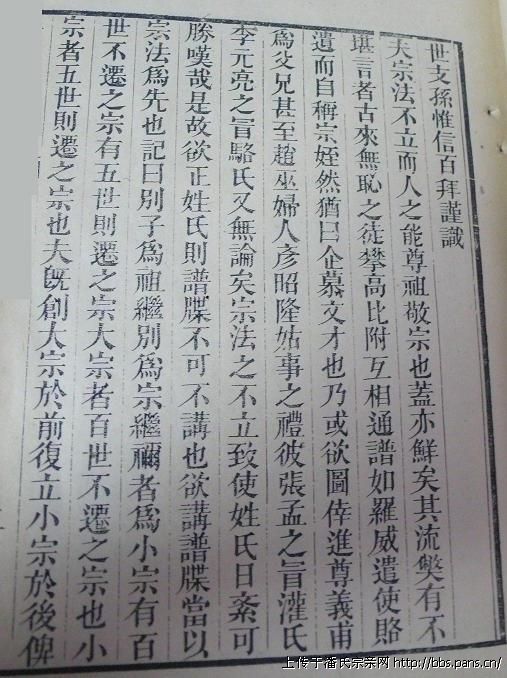 世支孫惟信百拜謹識
夫宗法不立而人之能尊祖敬宗也蓋亦鮮矣其流獘有不
堪言者古來無恥之徒攀高比附互相通譜如羅威遣使賂
遺而自稱宗姪然猶曰企慕文才也乃或欲圖倖進尊義甫
爲父兄甚至趙巫婦人彥昭隆姑事之禮彼張孟之冐灌氏
李元亮之冐駱氏又無論矣宗法之不立致使姓氏日紊可
勝嘆哉是故欲正姓氏則譜牒不可不講也欲講譜牒當以
宗法爲先也記曰別子爲祖繼別爲宗繼禰者爲小宗有百
世不遷之宗有五世則遷之宗大宗者百世不遷之宗也小
宗者五世則遷之宗也夫既創大宗於前復立小宗於後俾
上传于潘氏宗亲网 http://bbs.pans.cn/